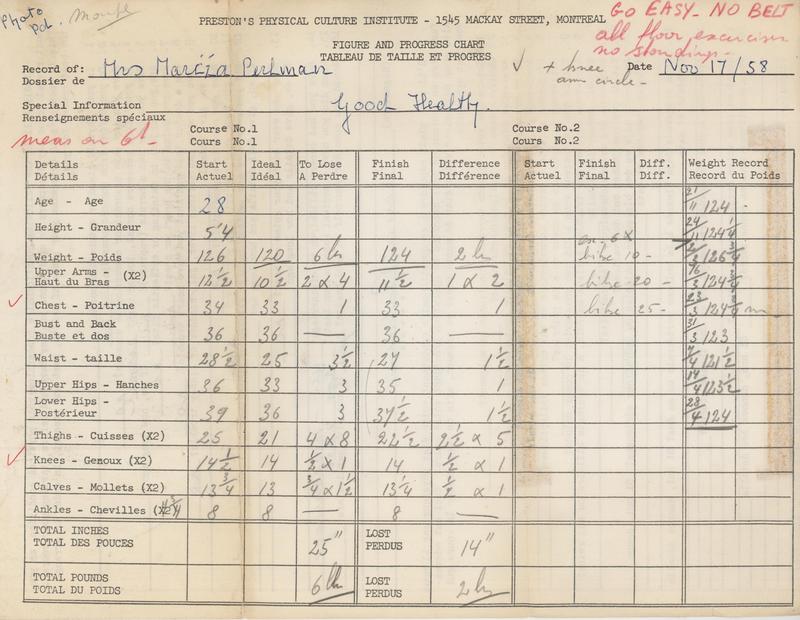 Photo
Pd.
PRESTON'S PHYSICAL CULTURE INSTITUTE - 1545 MACKAY STREET, MONTREAL
GO EASY - NO BELT
all floor exercises
no standings -
FIGURE AND PROGRESS CHART
TABLEAU DE TAILLE ET PROGRES
Record of: Mrs Marcia Perlman
Dossier de
✓ + knee
arm circle -
Date Nov 17/58
Special Information Good Health.
Renseignements spéciaux
meas on 6th -
Course No.1 Course No.2
Cours No.1 Cours No.2
Details Start Ideal To Lose Finish Difference Start Finish Diff. Weight Record
Détails Actuel Idéal A Perdre Final Différence Actuel Final Diff. Record du Poids
Age - Age 28 21/11 124 -
Height - Grandeur 5'4 24/11 124 1/4
ex. 6x
Weight - Poids 126 120 6 lbs 124 2 lbs bike 10 -
Upper Arms - (X2) 12 1/2 10 1/2 2 x 4 11 1/2 1 x 2 bike 20 -
Haut du Bras
✓ Chest - Poitrine 34 33 1 33 1 bike 25 -
Bust and Back 31/3 123
Buste et dos 36 36 — 36 —
Waist - taille 28 1/2 25 3 1/2 27 1 1/2 7/4 121 1/2
Upper Hips - Hanches 36 33 3 35 1 14/4 123 1/2
Lower Hips - 28/4 124
Postérieur 39 36 3 37 1/2 1 1/2
Thighs - Cuisses (X2) 25 21 4 x 8 22 1/2 2 1/2 x 5
✓ Knees - Genoux (X2) 14 1/2 14 1/2 x 1 14 1/2 x 1
Calves - Mollets (X2) 13 3/4 13 3/4 x 1 1/2 13 1/4 1/2 x 1
Ankles - Chevilles (X2) 8 8 — 8 —
TOTAL INCHES LOST
TOTAL DES POUCES 25" PERDUS 14"
TOTAL POUNDS LOST
TOTAL DU POIDS 6 lbs PERDUS 2 lbs